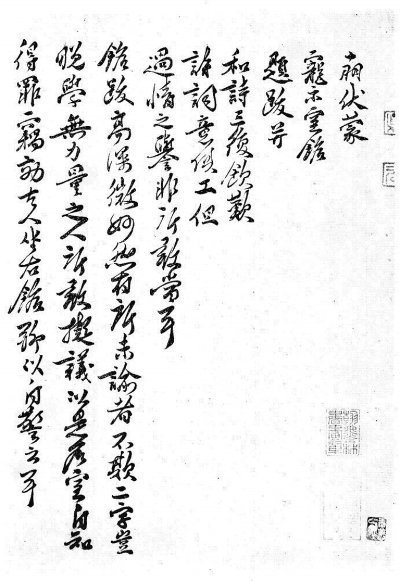 伏蒙
寵示室銘
題跋并
和詩三復欽歎
詩詞意俱工但
過情之譽非所敢當耳
銘跋高深微妙然有所未諭者不欺二字豈
晚學無力量之人所敢擬議以是名室自知
得罪竊効古人坐右銘聊以自警云耳